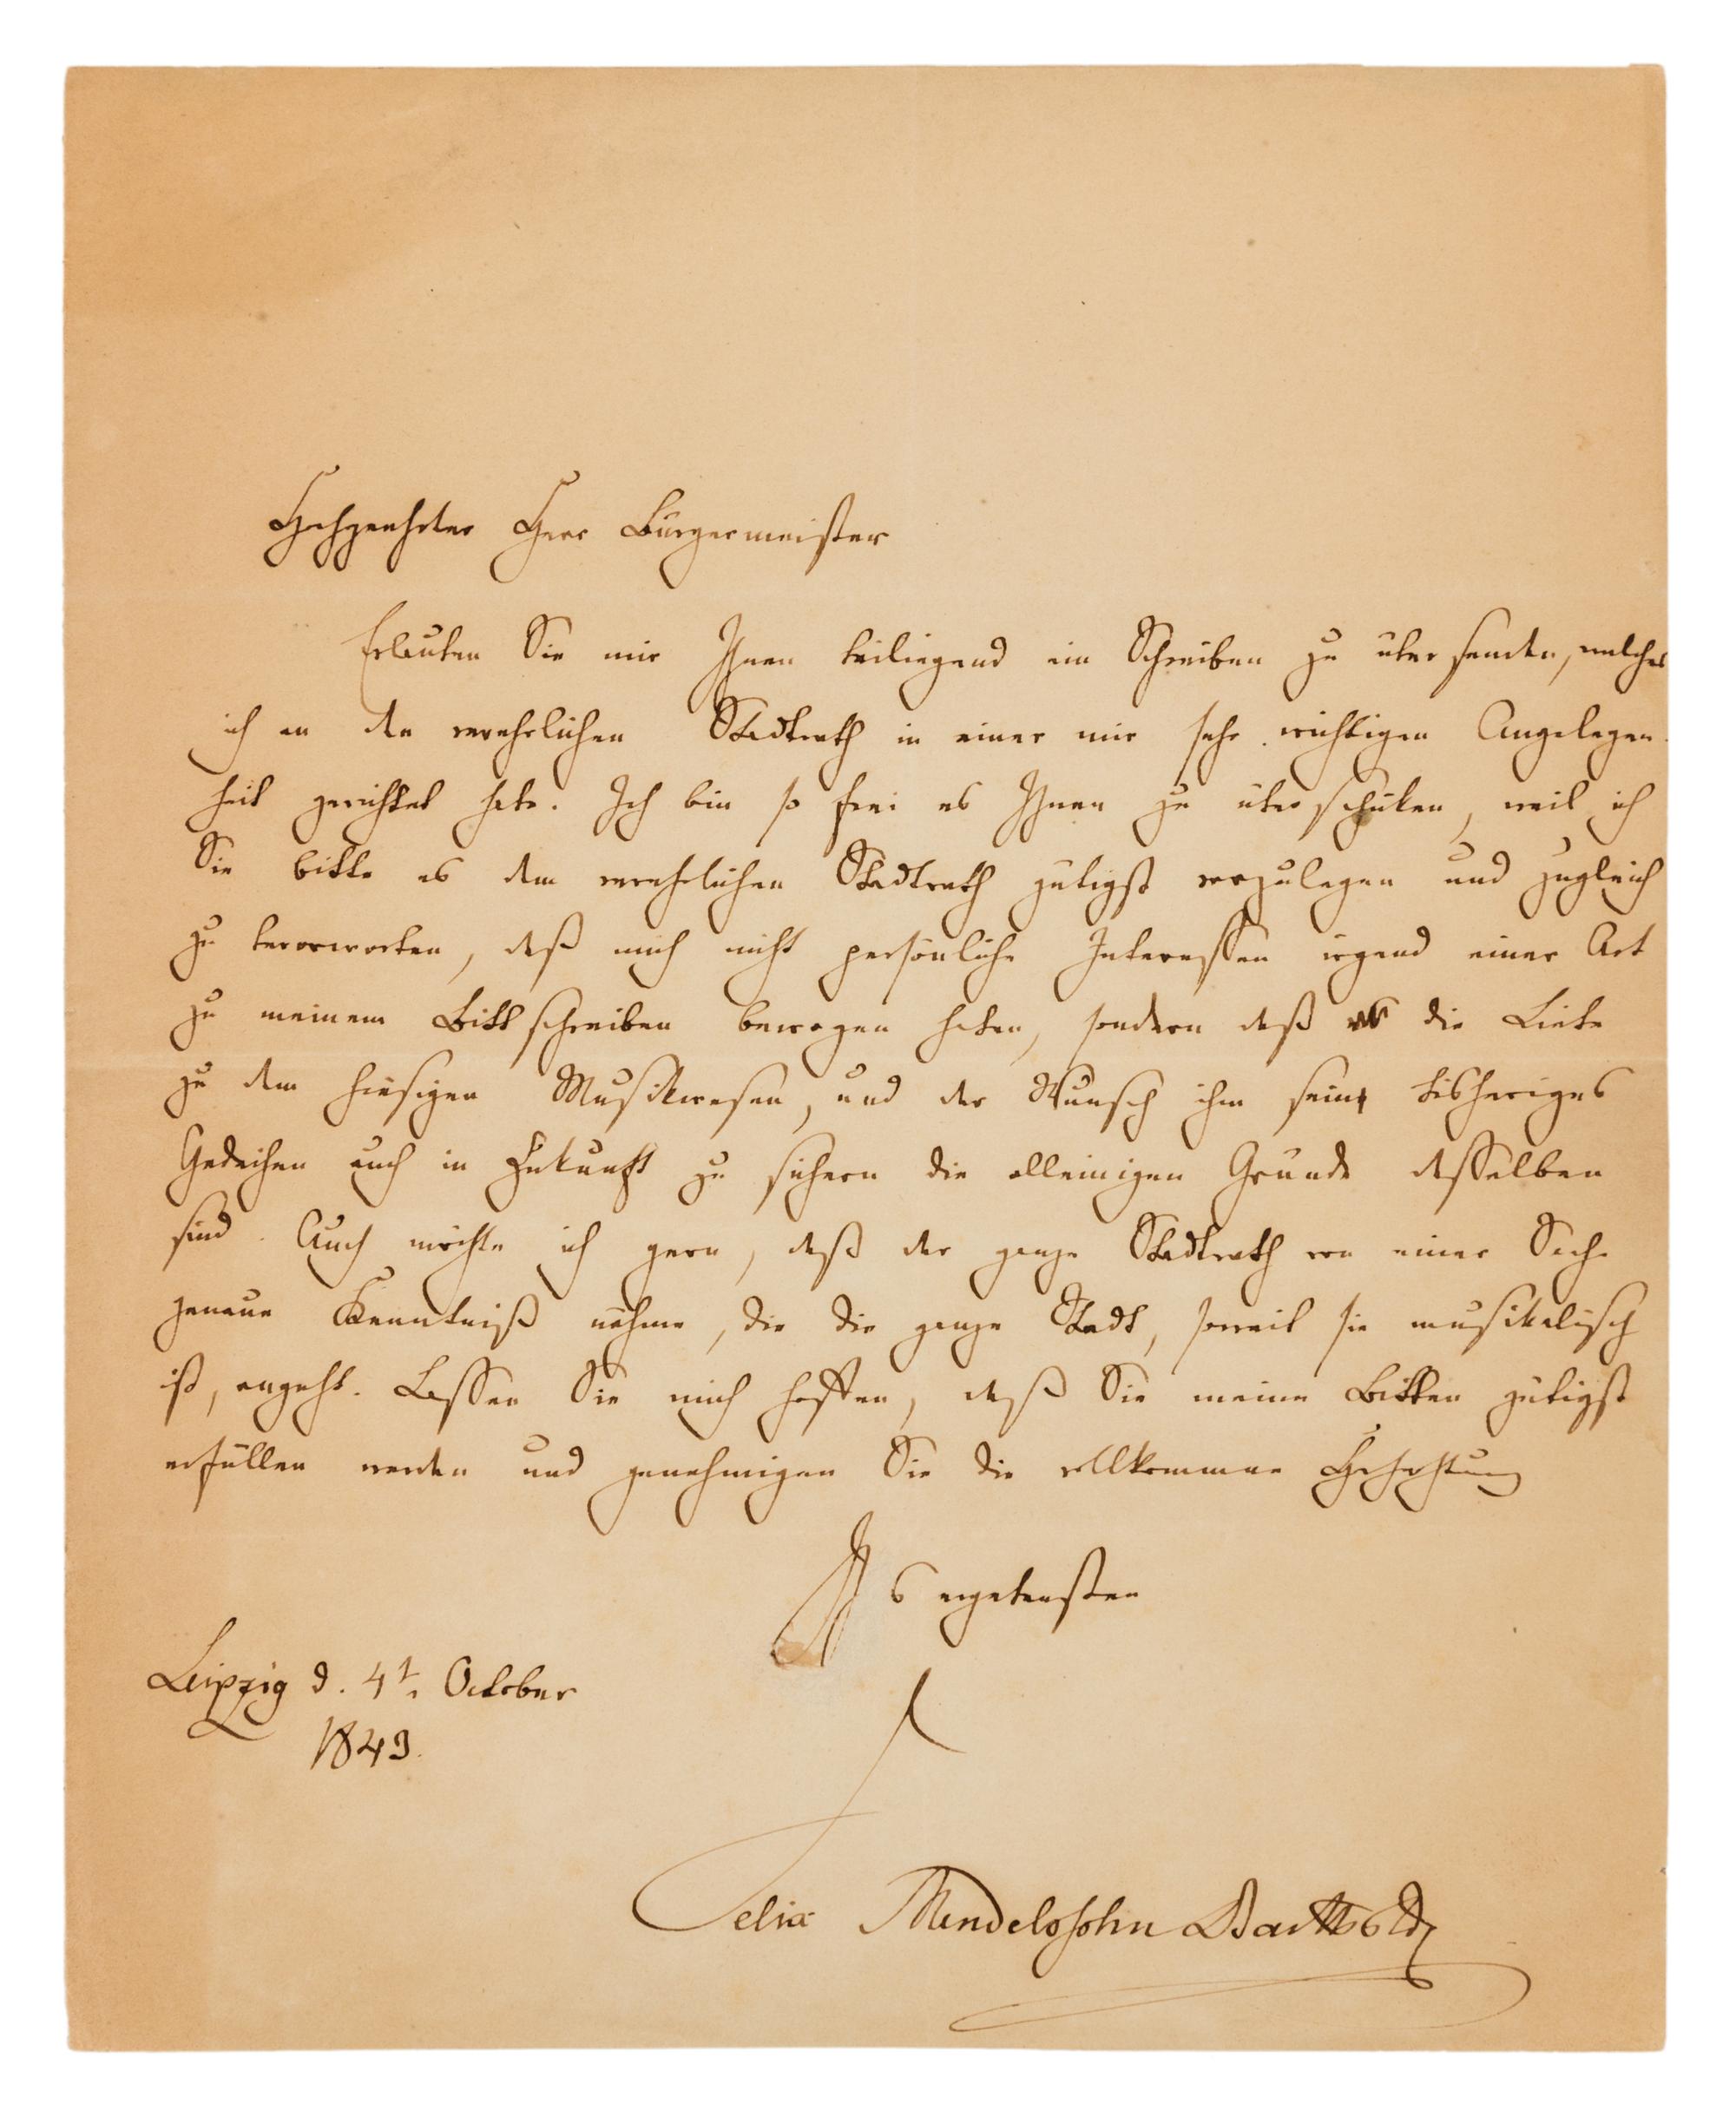 Hochgeehrter Herr Bürgermeister
Erlauben Sie mir Ihnen beiliegend ein Schreiben zu übersenden, welches
ich an den verehrlichen Stadtrath in einer mir sehr wichtigen Angelegen
heit gerichtet habe. Ich bin so frei es Ihnen zu überschicken, weil ich
Sie bitte es dem verehrlichen Stadtrath gütigst vorzulegen und zugleich
zu bevorworten, daß mich nicht persönliche Interessen irgend einer Art
zu meinem Bittschreiben bewogen haben, sondern daß die Liebe
zu dem hiesigen Musikwesen, und der Wunsch ihm sein bisheriges
Gedeihen auch in Zukunft zu sichern die alleinigen Gründe desselben
sind. Auch möchte ich gern, daß der ganze Stadtrath von einer Sache
genaue Kenntniß nähme, die die ganze Stadt, soweit sie musikalisch
ist, angeht. Lassen Sie mich hoffen, daß Sie meine Bitten gütigst
erfüllen werden und genehmigen Sie die vollkommne Hochachtung
Ihres ergebensten
Leipzig d. 4t. October
1843.
Felix Mendelssohn Bartholdy